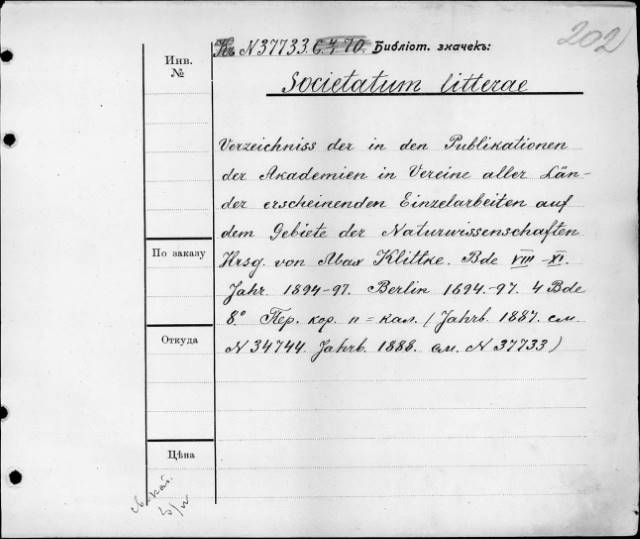 202
N 37733. Библіот. значекъ:
Инв.
№
Societatum litterae
Verzeichniss der in den Publikationen
der Akademien in Vereine aller Län-
der erscheinenden Einzelarbeiten auf
dem Gebiete der Naturwissenschaften
Hrsg. von Max Klittke. Bde VIII-XI.
Jahr 1894-97. Berlin 1694-97. 4 Bde
8° Пер. кор. п=кал. (Jahrb. 1887. см.
N 34744. Jahrb. 1888. см. N 37733)
По заказу
Откуда
Цѣна